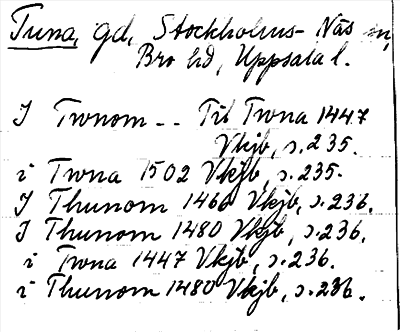 Tuna, gd, Stockholms-Näs sn,
Bro hd, Uppsala l.
I Twnom -- Til Twna 1447
Vkjb, s. 235.
i Twna 1502 Vkjb, s. 235.
I Thunom 1460 Vkjb, s. 236.
I Thunom 1480 Vkjb, s. 236.
i Twna 1447 Vkjb, s. 236.
i Thunom 1480 Vkjb, s. 236.